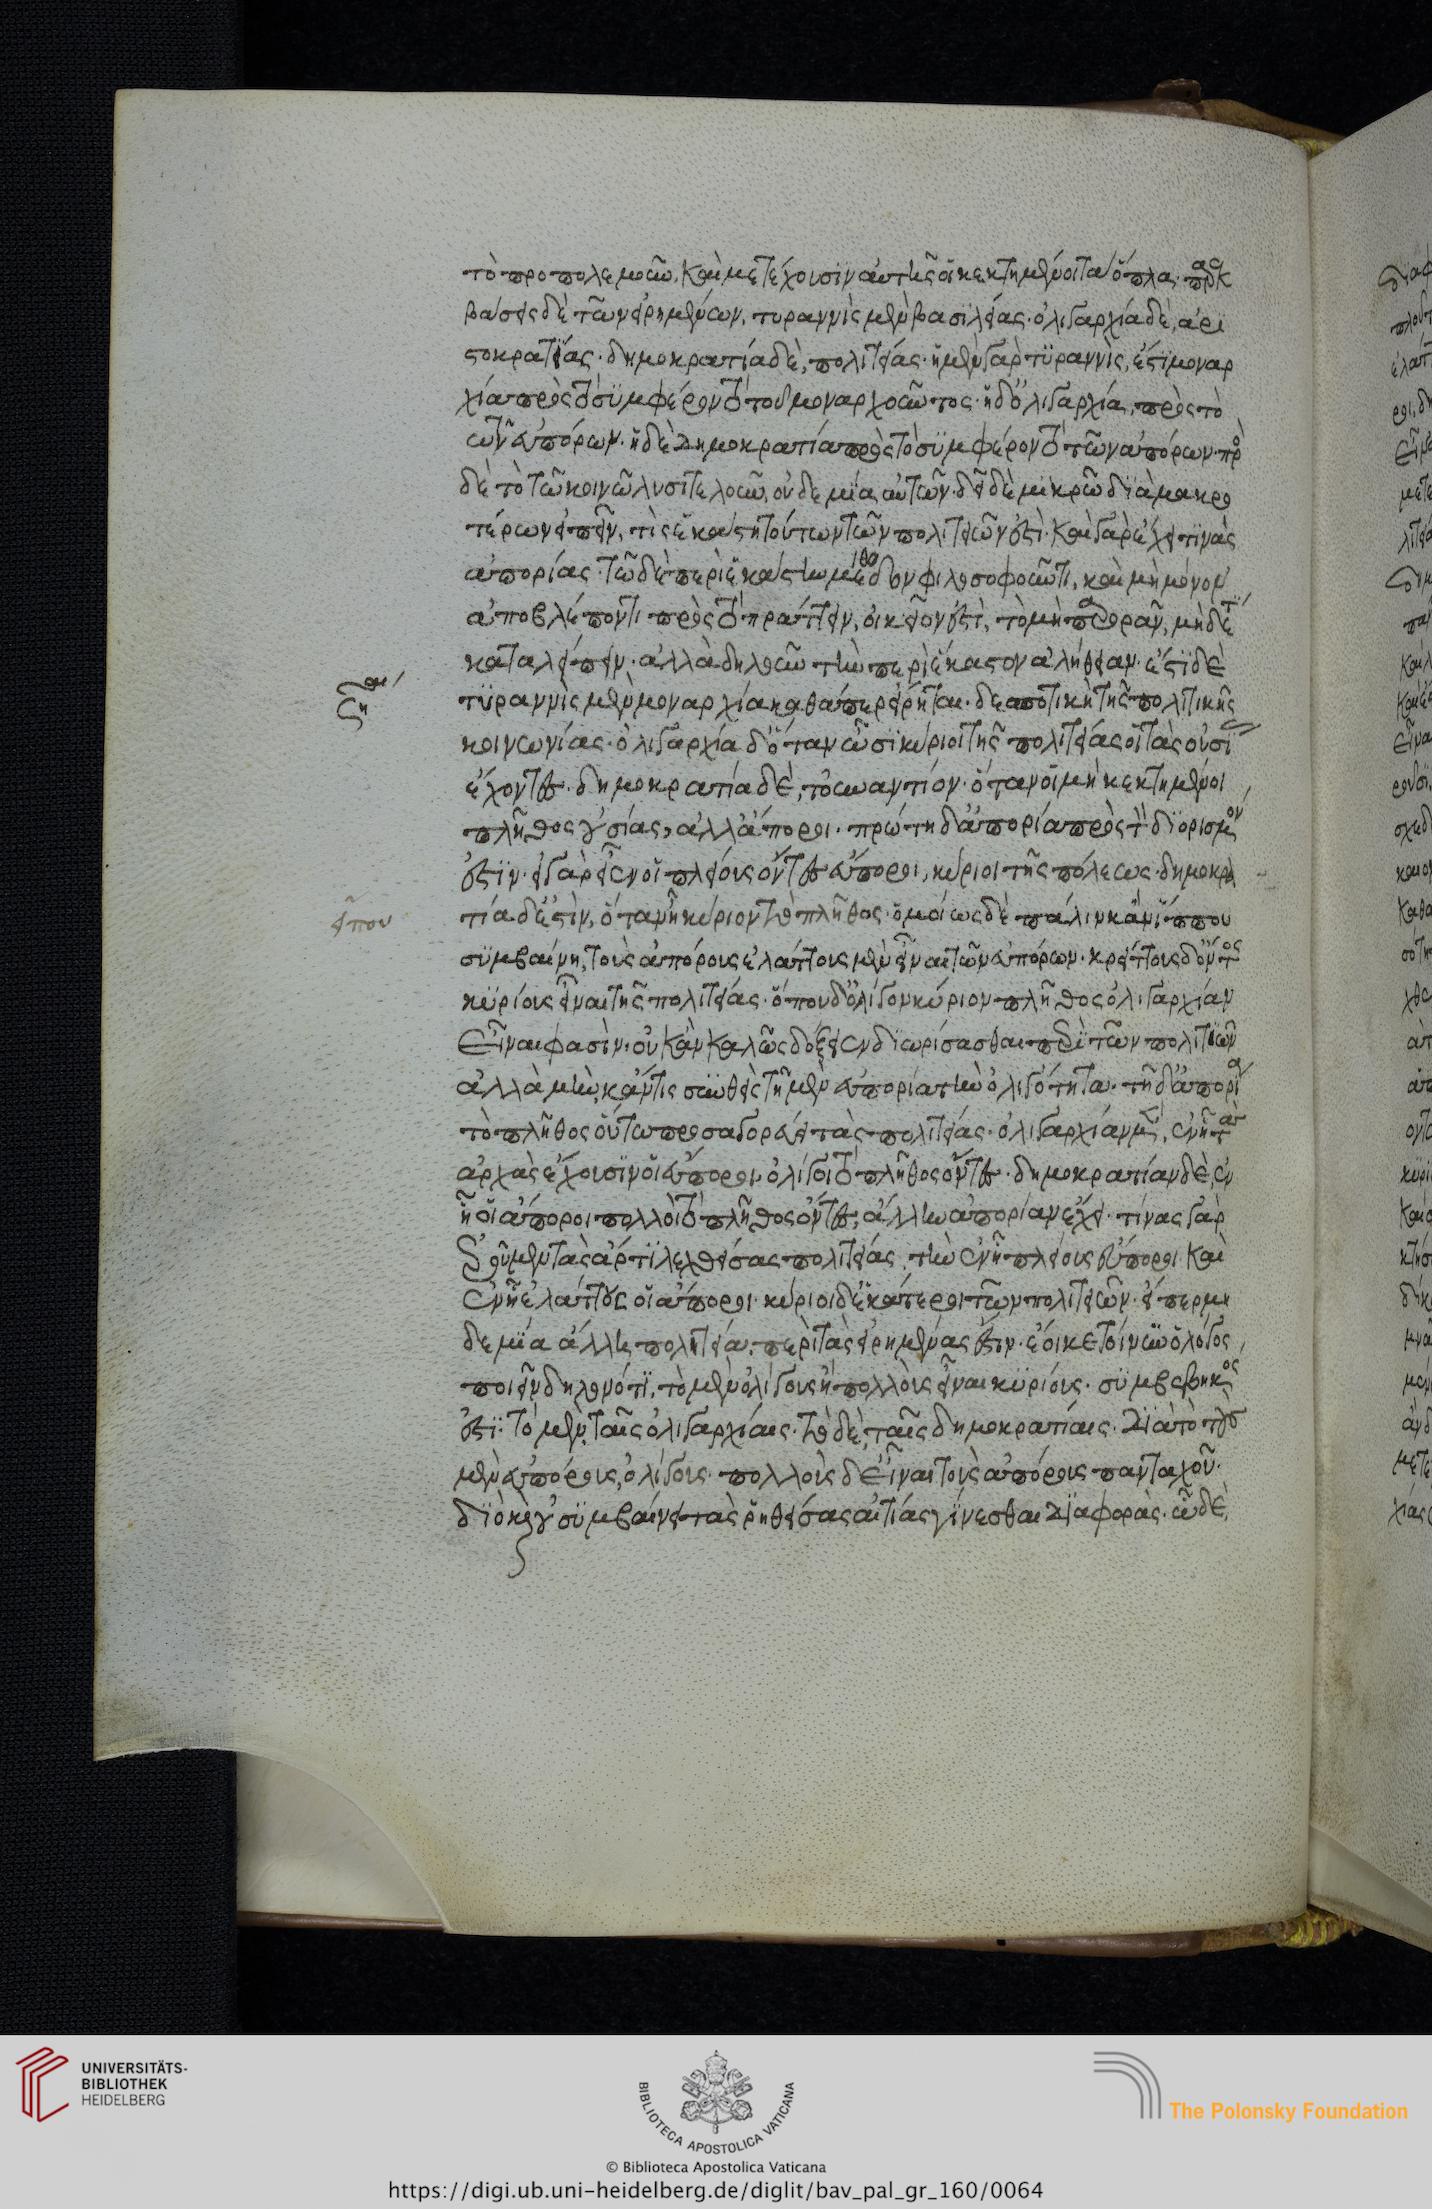 τὸ προπολεμοῦν, καὶ μετέχουσϊν αὐτῆς οἵ κεκτημένοι τὰ ὅπλα· παρεκ
βάσεις δὲ τῶν εἰρημένων, τυραννὶς μὲν βασϊλείας· ὀλιγαρχία δὲ, ἀρϊ
στοκρατείας· δημοκρατία δὲ, πολιτείας· ἡ μὲν γὰρ τϋραννὶς, ἐστϊ μοναρ
χία πρὸς τὸ σϋμφέρον τὸ τοῦ μοναρχοῦντος· ἡ δ' ὀλιγαρχία, πρὸς τὸ
τῶν εὐπόρων· ἡ δὲ δημοκρατία πρὸς τὸ σϋμφέρον τὸ τῶν ἀπόρων· πρὸς
δὲ τὸ τῶ κοινῶ λυσιτελοῦν, οὐδεμία αὐτῶν· δεῖ δὲ μϊκρῶ δϊὰ μακρο
τέρων εἰπεῖν, τὶς ἑκάστη τούτων τῶν πολιτειῶν ἐστὶ· καὶ γὰρ ἔχει τϊνὰς
ἀπορίας· τῶ δὲ περὶ ἑκάστην μέθοδον φιλοσοφοῦντι, καὶ μὴ μόνον
ἀποβλέποντι πρὸς τὸ πράττειν, οἰκεῖον ἐστὶ, τὸ μὴ παρορᾶν, μὴδέ τϊ
καταλείπειν· ἀλλὰ δηλοῦν τὴν περὶ ἕκαστον ἀλήθειαν· ἔστϊ δὲ
τϋραννὶς μὲν μοναρχία καθάπερ εἴρηται· δεσποτικὴ τῆς πολιτικῆς
κοινωνίας· ὀλιγαρχία δ' ὅταν ὦσϊ κύριοι τῆς πολιτείας οἱ τὰς οὐσί
ἔχοντες· δημοκρατία δὲ, τὸ ἐναντίον· ὅταν οἵ μὴ κεκτημένοι
πλῆθος οὐσίας, ἀλλ' ἄποροι· πρώτη δ' ἀπορία πρὸς τὸν δϊορισμόν
ἐστϊν· εἰ γὰρ εἶεν οἵ πλείους ὄντες εὔποροι, κύριοι τῆς πόλεως· δημοκρα
εἴπου τία δέ ἐστὶν, ὅταν ᾖ κύριον τὸ πλῆθος· ὁμοίως δὲ πάλιν κἄν ἵππου
σϋμβαίνη, τοὺς ἀπόρους ἐλάττους μὲν εἶναι τῶν εὐπόρων· κρείττους δ' ὄντας
κϋρίους εἶναι τῆς πολιτείας· ὅπου δ' ὀλίγον κύριον πλῆθος ὀλιγαρχίαν
εἶναι φασὶν· οὐκ ἂν καλῶς δόξειεν δϊωρίσασθαι περὶ τῶν πολιτειῶν
ἀλλὰ μὴν, κἄν τις σϋνθεὶς τῆ μὲν εὐπορία τὴν ὀλιγότητα· τῆ δ' ἀπορία
τὸ πλῆθος οὕτω προσαγορεύει τὰς πολιτείας· ὀλιγαρχίαν μὲν, ἐν ᾗ τὰς
ἀρχὰς ἔχουσϊν οἵ εὔποροι ὀλίγοι τὸ πλῆθος ὄντες· δημοκρατίαν δὲ, ἐν
ᾗ οἵ ἄποροι πολλοὶ τὸ πλῆθος ὄντες, ἄλλην ἀπορίαν ἔχει· τίνας γὰρ
ἐροῦμεν τὰς ἄρτϊ λεχθείσας πολιτείας, τὴν ἐν ᾗ πλείους εὔποροι· καὶ
ἐν ᾗ ἐλάττους οἵ ἄποροι· κύριοι δ' ἑκάτεροι τῶν πολιτειῶν· εἴπερ μη
δεμία ἄλλη πολιτεία, περὶ τὰς εἰρημένας ἐστϊν· ἔοικε τοίνϋν ὁ λόγος
ποιεῖν δηλονότϊ, τὸ μὲν ὀλίγους ἢ πολλοὺς εἶναι κϋρίους· σϋμβεβηκός
ἐστϊ· τὸ μὲν, ταῖς ὀλιγαρχίαις· τὸ δὲ, ταῖς δημοκρατίαις· δϊὰ τὸ τοὺς
μὲν εὐπόρους, ὀλίγους· πολλοὺς δ' εἶναι τοὺς ἀπόρους πανταχοῦ·
δϊὸ καὶ οὐ σϋμβαίνει τὰς ῥηθείσας αἰτίας γίνεσθαι δϊαφορὰς· ὧ δὲ
UNIVERSITÄTS-
BIBLIOTHEK
HEIDELBERG
BIBLIOTECA APOSTOLICA VATICANA
The Polonsky Foundation
© Biblioteca Apostolica Vaticana
https://digi.ub.uni-heidelberg.de/diglit/bav_pal_gr_160/0064